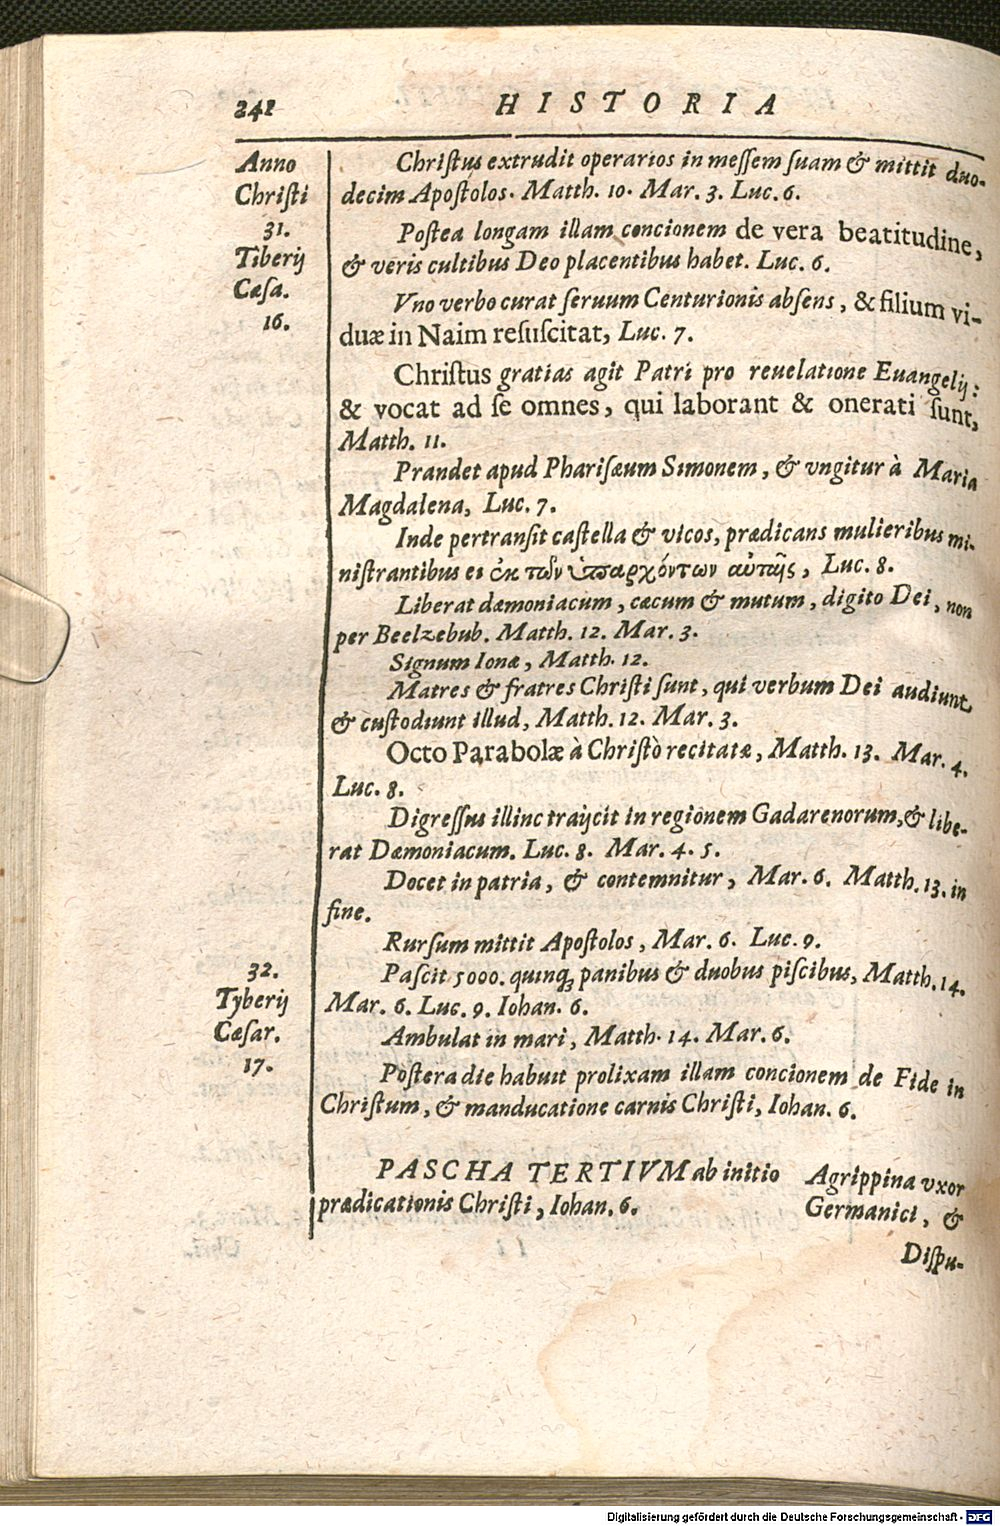 242 HISTORIA
Anno
Chriſti
31.
Tiberij
Cæſa.
16.
Chriſtus extrudit operarios in meſſem ſuam & mittit duo-
decim Apoſtolos. Matth. 10. Mar. 3. Luc. 6.
Poſtea longam illam concionem de vera beatitudine,
& veris cultibus Deo placentibus habet. Luc. 6.
Vno verbo curat ſeruum Centurionis abſens, & filium vi-
duæ in Naim reſuſcitat, Luc. 7.
Chriſtus gratias agit Patri pro reuelatione Euangelij:
& vocat ad ſe omnes, qui laborant & onerati ſunt,
Matth. 11.
Prandet apud Phariſæum Simonem, & vngitur à Maria
Magdalena, Luc. 7.
Inde pertranſit caſtella & vicos, prædicans mulieribus mi-
niſtrantibus ei ἐκ τῶν ὑπαρχόντων αὐταῖς, Luc. 8.
Liberat dæmoniacum, cæcum & mutum, digito Dei, non
per Beelzebub. Matth. 12. Mar. 3.
Signum Ionæ, Matth. 12.
Matres & fratres Chriſti ſunt, qui verbum Dei audiunt,
& cuſtodiunt illud, Matth. 12. Mar. 3.
Octo Parabolæ à Chriſto recitatæ, Matth. 13. Mar. 4.
Luc. 8.
Digreſſus illinc traijcit in regionem Gadarenorum, & libe-
rat Dæmoniacum. Luc. 8. Mar. 4. 5.
Docet in patria, & contemnitur, Mar. 6. Matth. 13. in
fine.
Rurſum mittit Apoſtolos, Mar. 6. Luc. 9.
32.
Tyberij
Cæſar.
17.
Paſcit 5000. quinq; panibus & duobus piſcibus, Matth. 14.
Mar. 6. Luc. 9. Iohan. 6.
Ambulat in mari, Matth. 14. Mar. 6.
Poſtera die habuit prolixam illam concionem de Fide in
Chriſtum, & manducatione carnis Chriſti, Iohan. 6.
PASCHA TERTIVM ab initio
prædicationis Chriſti, Iohan. 6.
Agrippina vxor
Germanici, &
Diſpu-
Digitalisierung gefördert durch die Deutsche Forschungsgemeinschaft - DFG